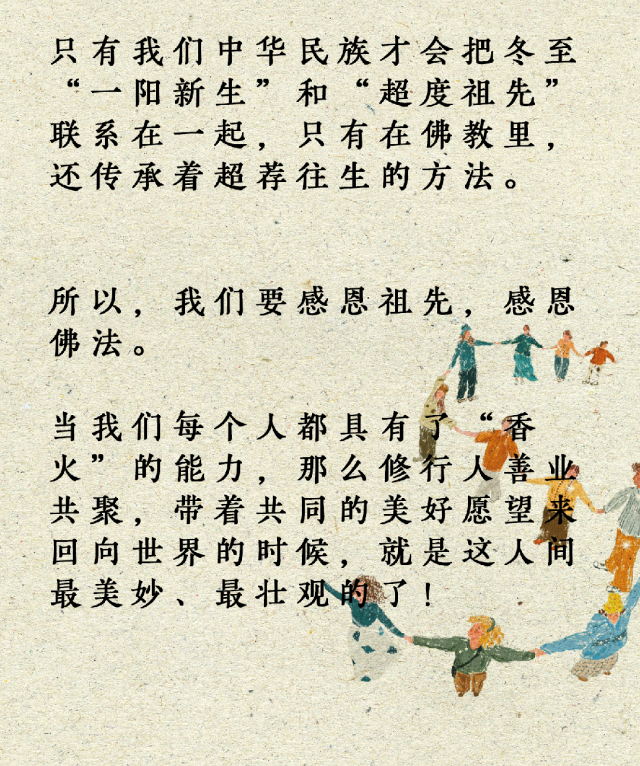 只有我们中华民族才会把冬至
“一阳新生”和“超度祖先”
联系在一起，只有在佛教里，
还传承着超荐往生的方法。
所以，我们要感恩祖先，感恩
佛法。
当我们每个人都具有了“香
火”的能力，那么修行人善业
共聚，带着共同的美好愿望来
回向世界的时候，就是这人间
最美妙、最壮观的了！